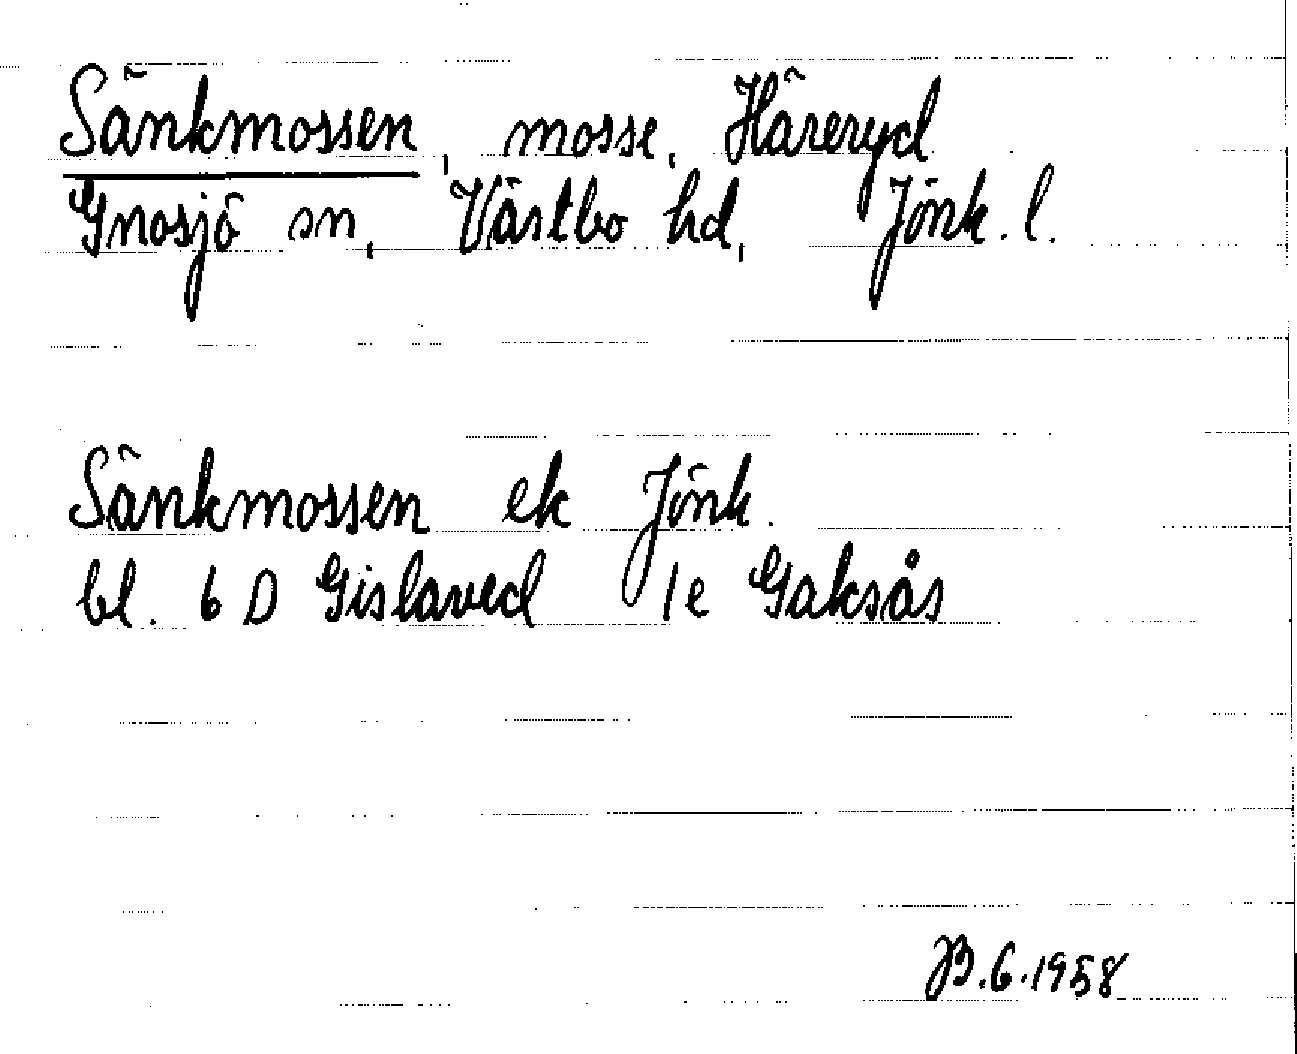 Sänkmossen, mosse, Häreryd
Gnosjö sn, Västbo hd, Jönk. l.
Sänkmossen ek Jönk.
bl. 6 D Gislaved 1e Gaksås
JB.6.1958